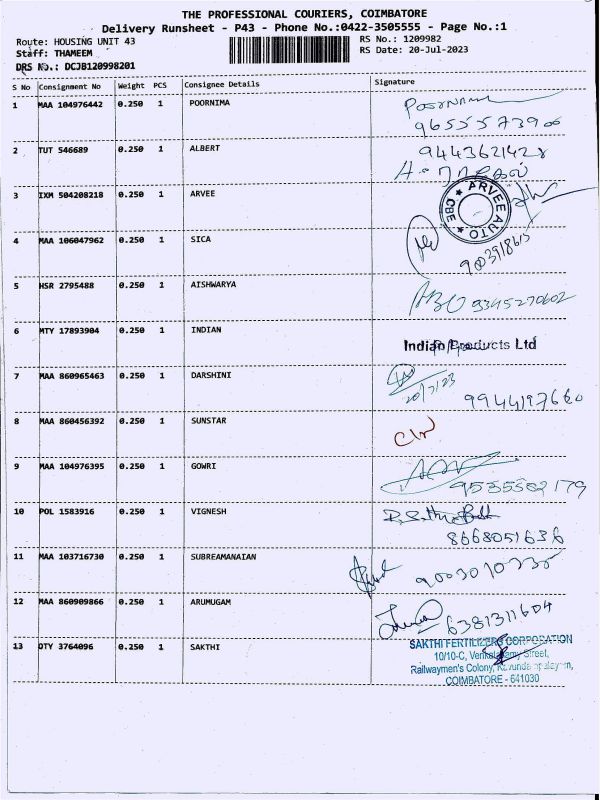 THE PROFESSIONAL COURIERS, COIMBATORE
Delivery Runsheet - P43 - Phone No.:0422-3505555 - Page No.:1
Route: HOUSING UNIT 43 RS No.: 1209982
Staff: THAMEEM RS Date: 20-Jul-2023
DRS No.: DCJB120998201
S No Consignment No Weight PCS Consignee Details Signature
1 MAA 104976442 0.250 1 POORNIMA
2 TUT 546689 0.250 1 ALBERT 9443621428
3 IXM 504208218 0.250 1 ARVEE ARVEE AUTO CBE
4 MAA 106047962 0.250 1 SICA
5 HSR 2795488 0.250 1 AISHWARYA 9345270602
6 MTY 17893904 0.250 1 INDIAN Indian Products Ltd
7 MAA 860965463 0.250 1 DARSHINI 20/7/23 9944197660
8 MAA 860456392 0.250 1 SUNSTAR
9 MAA 104976395 0.250 1 GOWRI
10 POL 1583916 0.250 1 VIGNESH 8668051636
11 MAA 103716730 0.250 1 SUBREAMANAIAN
12 MAA 860909866 0.250 1 ARUMUGAM 6381311604
13 OTY 3764096 0.250 1 SAKTHI SAKTHI FERTILIZERS CORPORATION
10/10-C, Street,
Railwaymen's Colony,
COIMBATORE - 641030